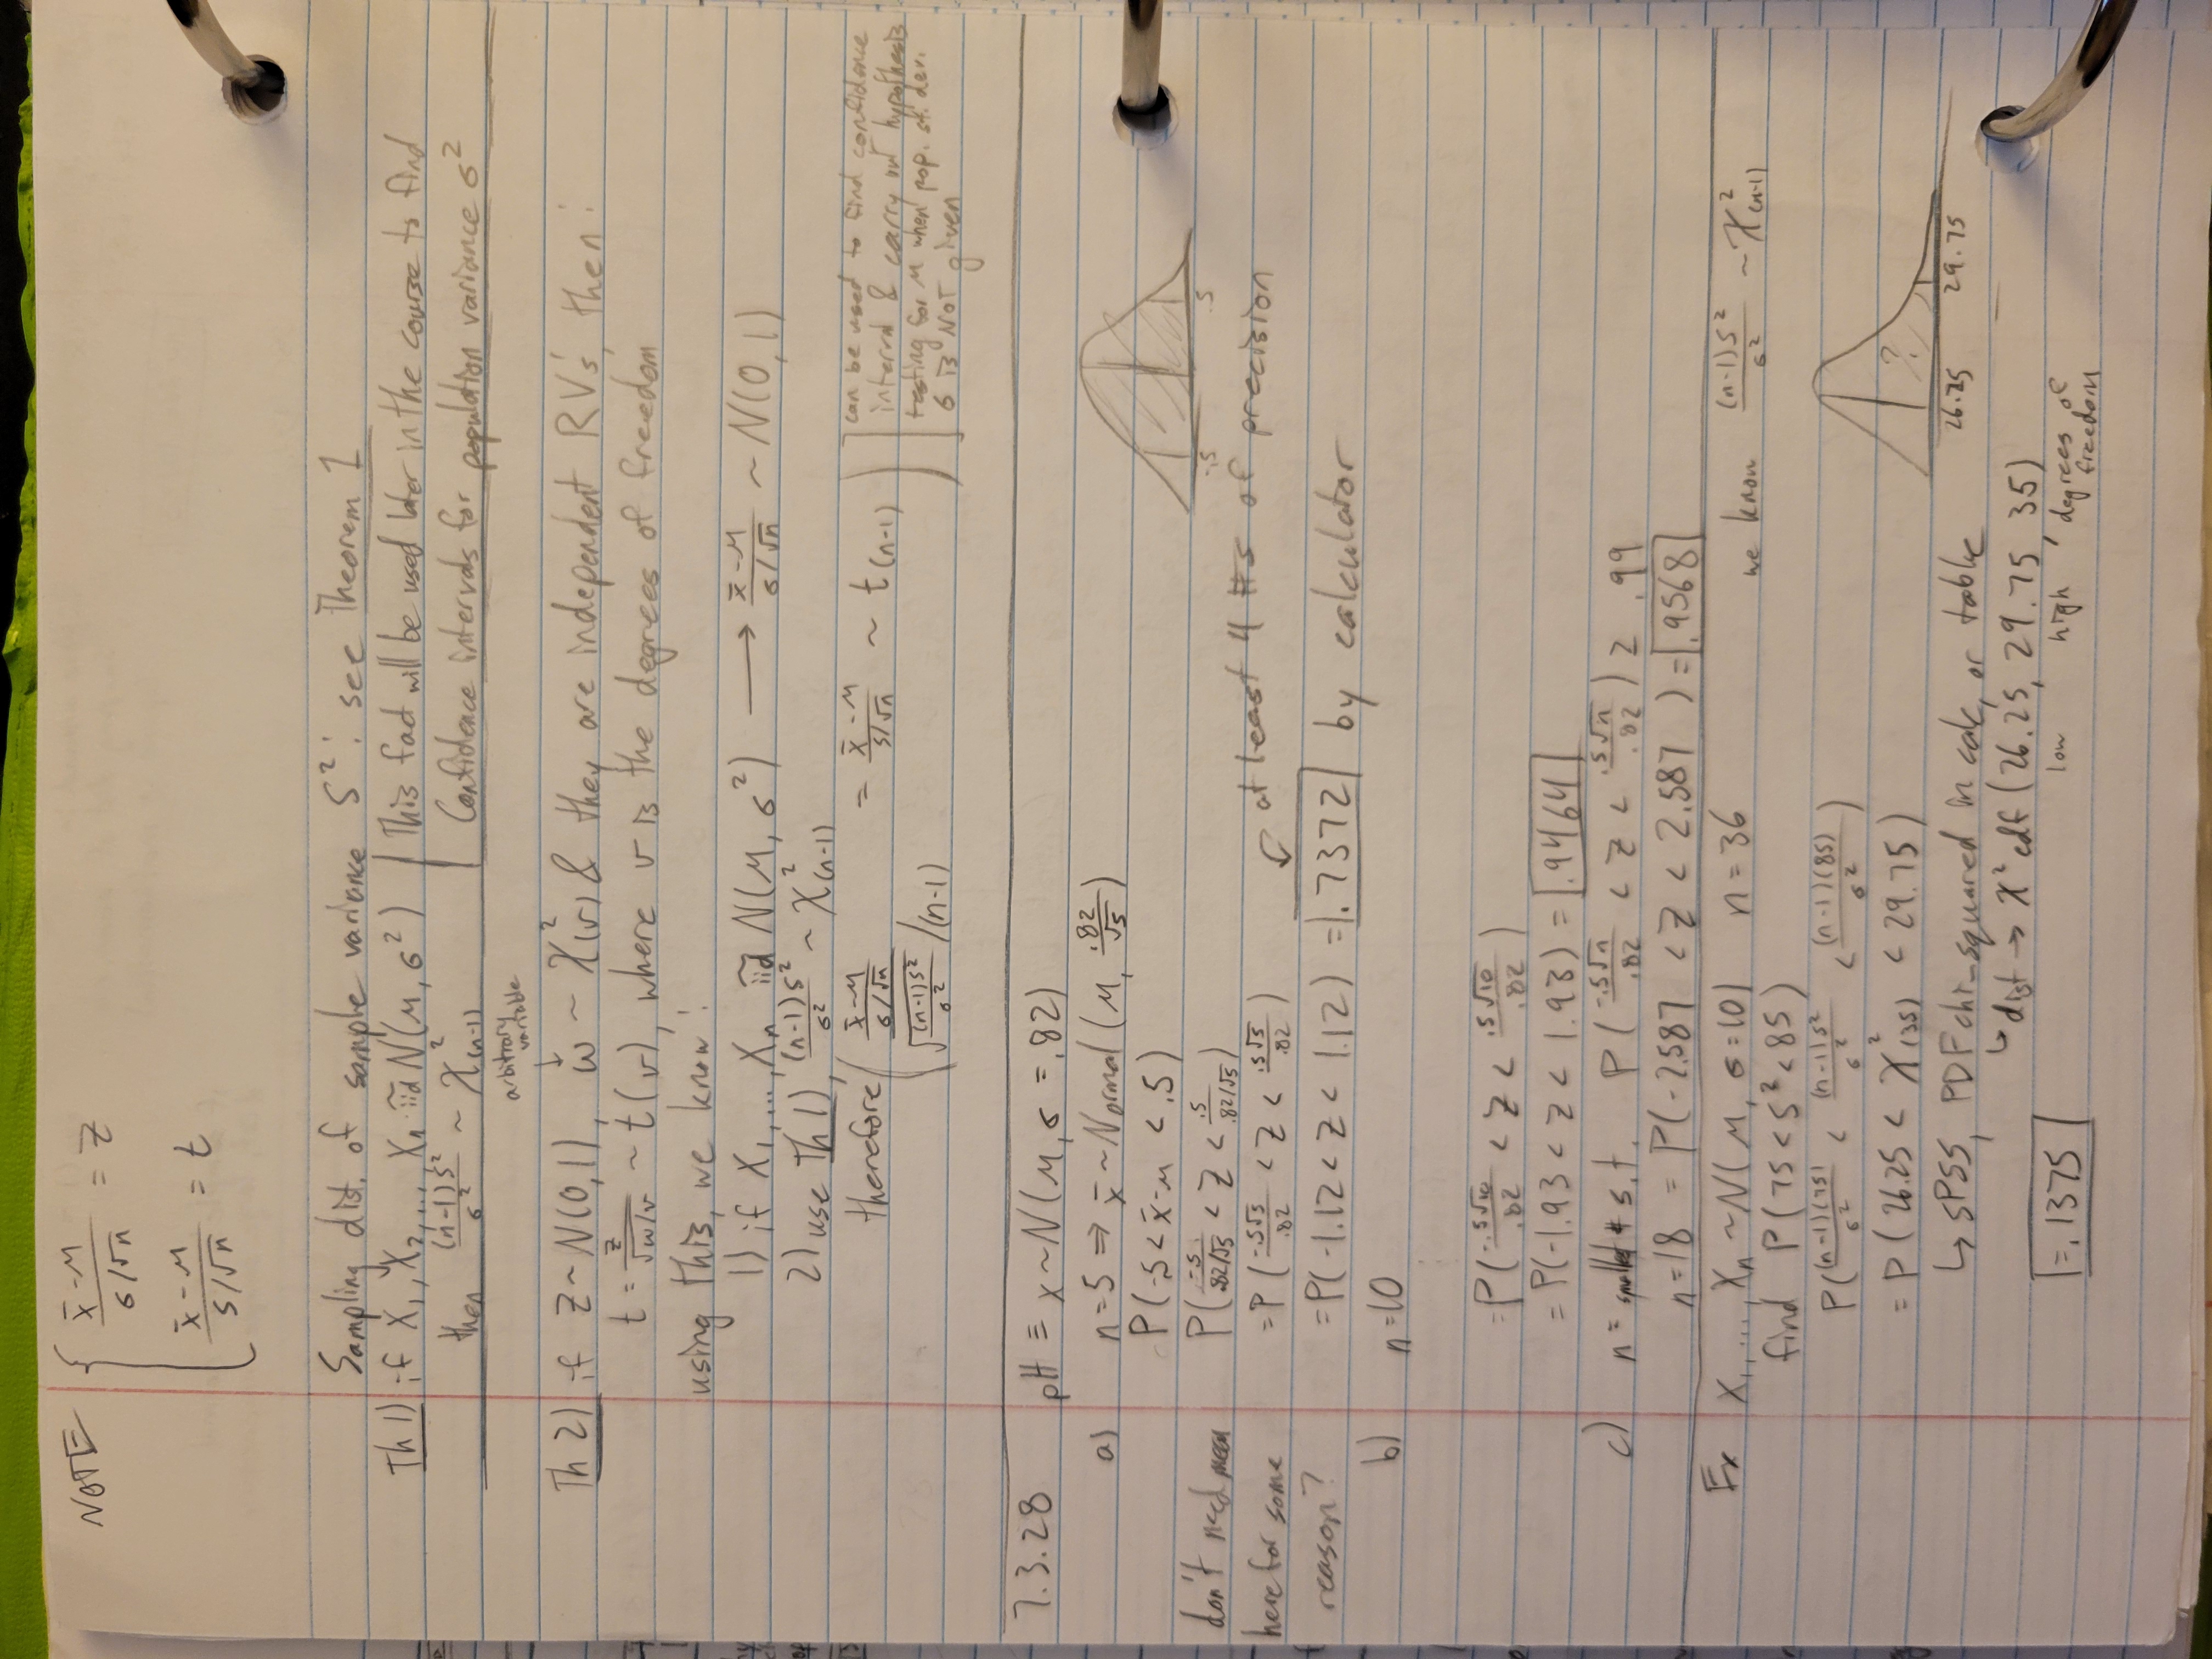 NOTE { (x̄-μ)/(σ/√n) = z
(x̄-μ)/(s/√n) = t
Sampling dist. of sample variance S²: see Theorem 1
Th 1) if X₁, X₂, ..., Xₙ ~iid N(μ, σ²) | This fact will be used later in the course to find
then (n-1)S²/σ² ~ χ²(n-1) | Confidence intervals for population variance σ²
arbitrary variable
↓
Th 2) if Z~N(0,1), ω ~ χ²(v) & they are independent RV's, then:
t = z/√(ω/v) ~ t(v), where v is the degrees of freedom
using this, we know:
1) if X₁, ..., Xₙ ~iid N(μ, σ²) → (x̄-μ)/(σ/√n) ~ N(0,1)
2) use Th 1), (n-1)S²/σ² ~ χ²(n-1)
therefore ( ((x̄-μ)/(σ/√n)) / (√((n-1)S²/σ²)/(n-1)) = (x̄-μ)/(s/√n) ~ t(n-1) )
can be used to find confidence
interval & carry out hypothesis
testing for μ when pop. st. dev.
σ is NOT given
7.3.28 pH ≡ x~N(μ, σ=.82)
a) n=5 ⇒ x̄~Normal(μ, .82/√5)
P(-.5 < x̄-μ < .5)
-.5 .5
don't need mean P(-.5/(.82/√5) < Z < .5/(.82/√5))
here for some =P(-.5√5/.82 < Z < .5√5/.82) at least 4 #s of precision
reason? =P(-1.12 < Z < 1.12) = .7372 by calculator
b) n=10
=P(-.5√10/.82 < Z < .5√10/.82)
= P(-1.93 < Z < 1.93) = .9464
c) n= smallest # s.t. P(-.5√n/.82 < Z < .5√n/.82) ≥ .99
n=18 = P(-2.587 < Z < 2.587) = .9568
Ex X₁, ..., Xₙ ~N(μ, σ=10) n=36 we know (n-1)S²/σ² ~ χ²(n-1)
find P(75 < S² < 85)
P((n-1)(75)/σ² < (n-1)S²/σ² < (n-1)(85)/σ²)
= P(26.25 < χ²(35) < 29.75)
?
26.25 29.75
↳ SPSS, PDF chi-squared in calc, or table
↳ dist → χ²cdf(26.25, 29.75, 35)
low high degrees of
freedom
=.1375